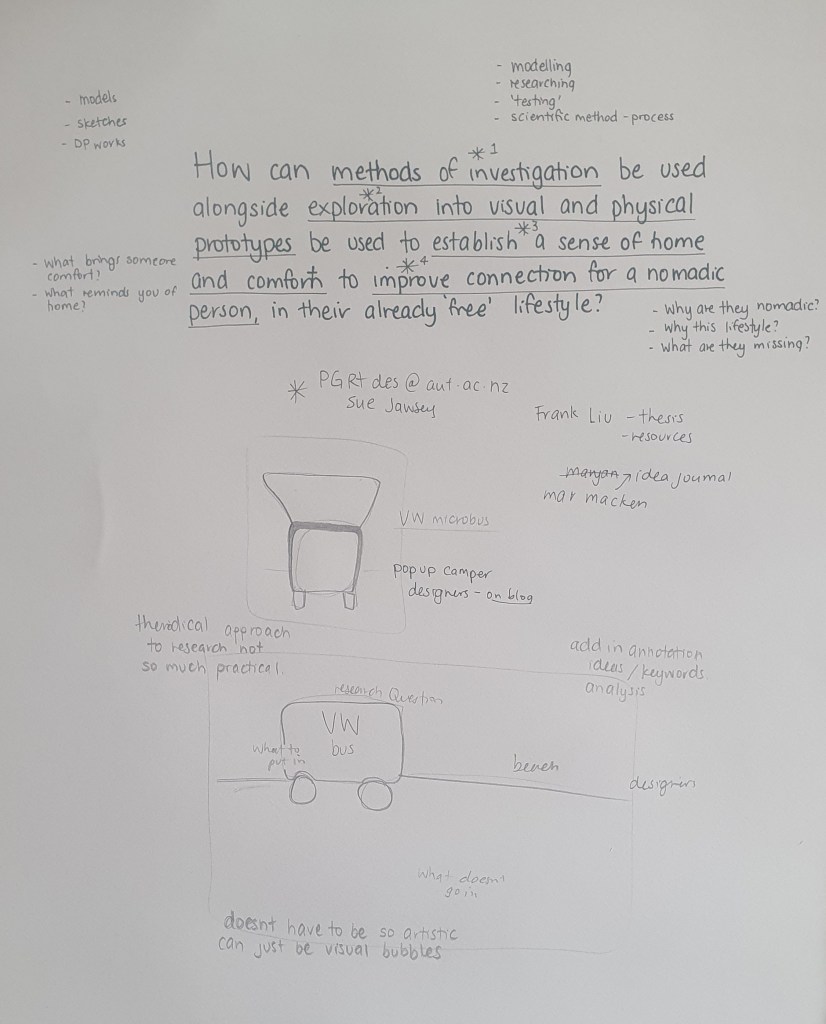 - models
- sketches
- DP works
- modelling
- researching
- 'testing'
- scientific method - process
*1
How can methods of investigation be used
*2
alongside exploration into visual and physical
*3
prototypes be used to establish a sense of home
*4
and comfort to improve connection for a nomadic
person, in their already 'free' lifestyle?
- what brings someone
comfort?
- what reminds you of
home?
- why are they nomadic?
- why this lifestyle?
- what are they missing?
* PGR+des@aut.ac.nz
Sue Jawsey
Frank Liu - thesis
- resources
idea journal
mar macken
VW microbus
popup camper
designers - on blog
approach
to research not
so much practical.
add in annotation
ideas / keywords
analysis
research Question
VW
bus
what to
put in
designers
what doesnt
go in
doesnt have to be so artistic
can just be visual bubbles